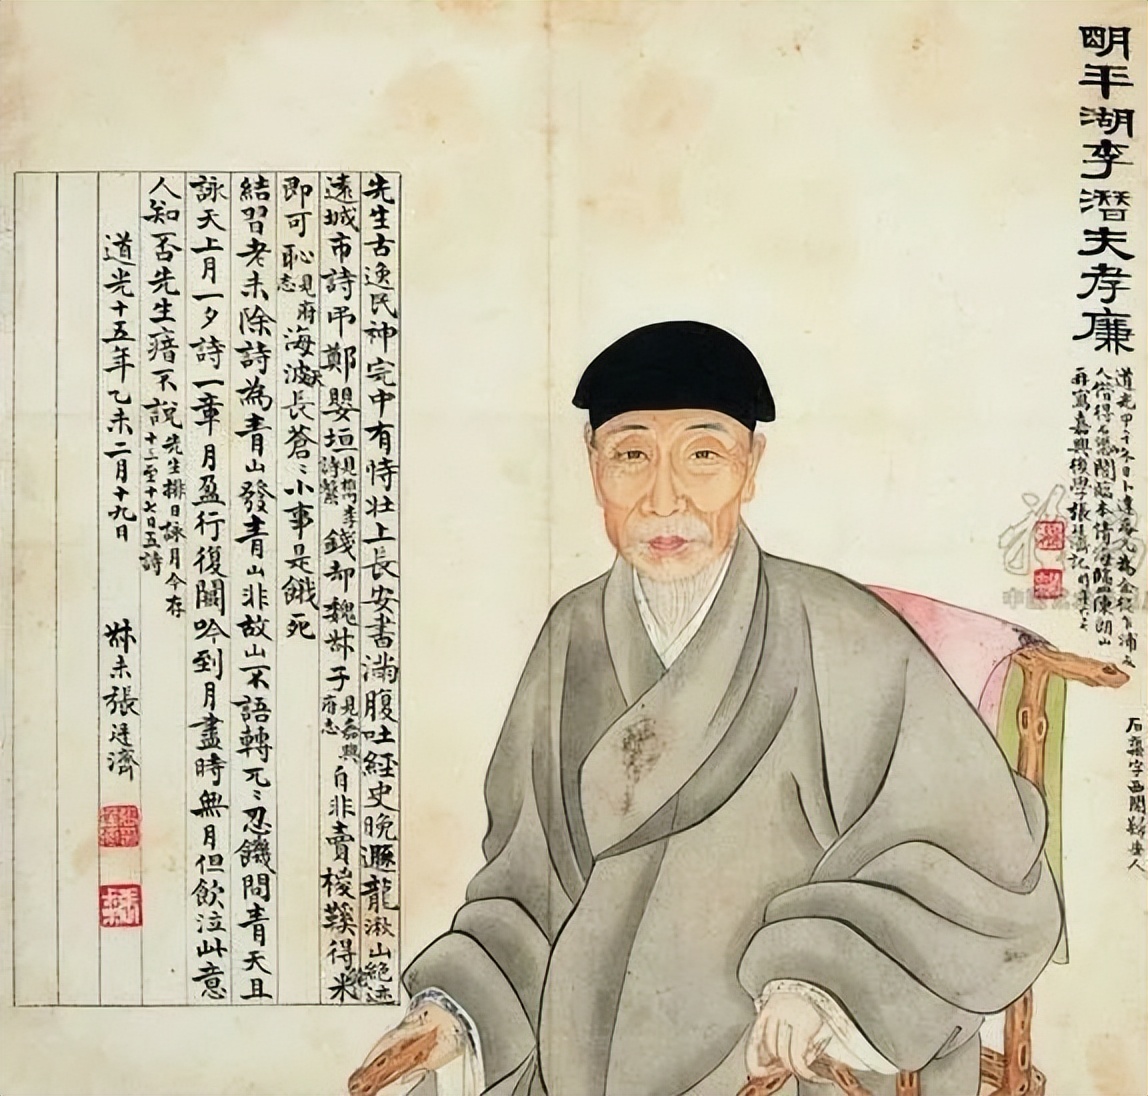 明平湖李潛夫孝廉
道光甲午冬日卜達庵兄為余從乍浦友
人借得石渠閣臨本倩海鹽陳朗山
再寫嘉興後學張廷濟記
石渠字西閣
先生古逸民神完中有恃壯上長安書滿腹吐經史晚遯龍湫山絕迹
遠城市詩弔鄭嬰垣見檇李詩繫錢却魏叔子見嘉興府志自非賣椶鞵得米
即可恥見府志海波天長蒼〻小事是餓死
結習老未除詩為青山發青山非故山不語轉兀〻忍饑問青天且
詠天上月一夕詩一章月盈行復闕吟到月盡時無月但飲泣此意
人知否先生瘖不說先生排日詠月今存十三至十七日五詩
道光十五年乙未二月十九日 叔未張廷濟